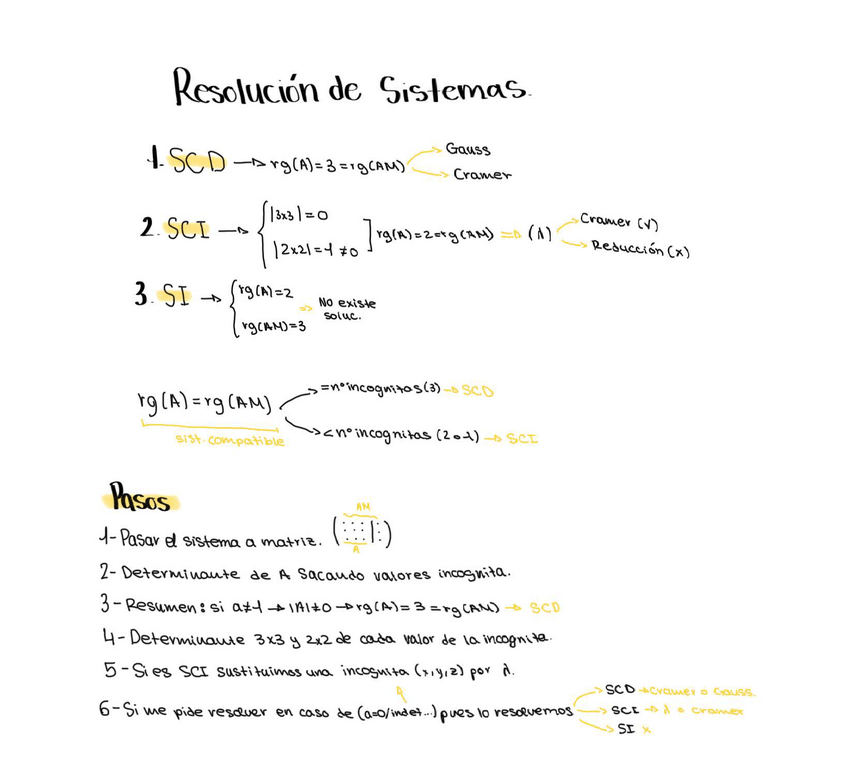 Resolución de Sistemas.
1. SCD → rg(A)=3=rg(AM) → Gauss
→ Cramer
2. SCI → { |3x3|=0
|2x2|=1≠0 ] rg(A)=2=rg(AM) ⇒ (λ) → Cramer (√)
→ Reducción (x)
3. SI → { rg(A)=2
rg(AM)=3 ⇒ No existe
soluc.
rg(A)=rg(AM) → =nº incognitas (3) → SCD
→ <nº incognitas (2 o 1) → SCI
sist. compatible
Pasos
AM
1- Pasar el sistema a matriz. ( ::: | : )
A
2- Determinante de A sacando valores incognita.
3- Resumen: si a≠1 → |A|≠0 → rg(A)=3=rg(AM) → SCD
4- Determinante 3x3 y 2x2 de cada valor de la incognita.
5- Si es SCI sustituimos una incognita (x,y,z) por λ.
6- Si me pide resolver en caso de (a=0/indet...) pues lo resolvemos → SCD → Cramer o Gauss.
→ SCI → λ o cramer
→ SI x